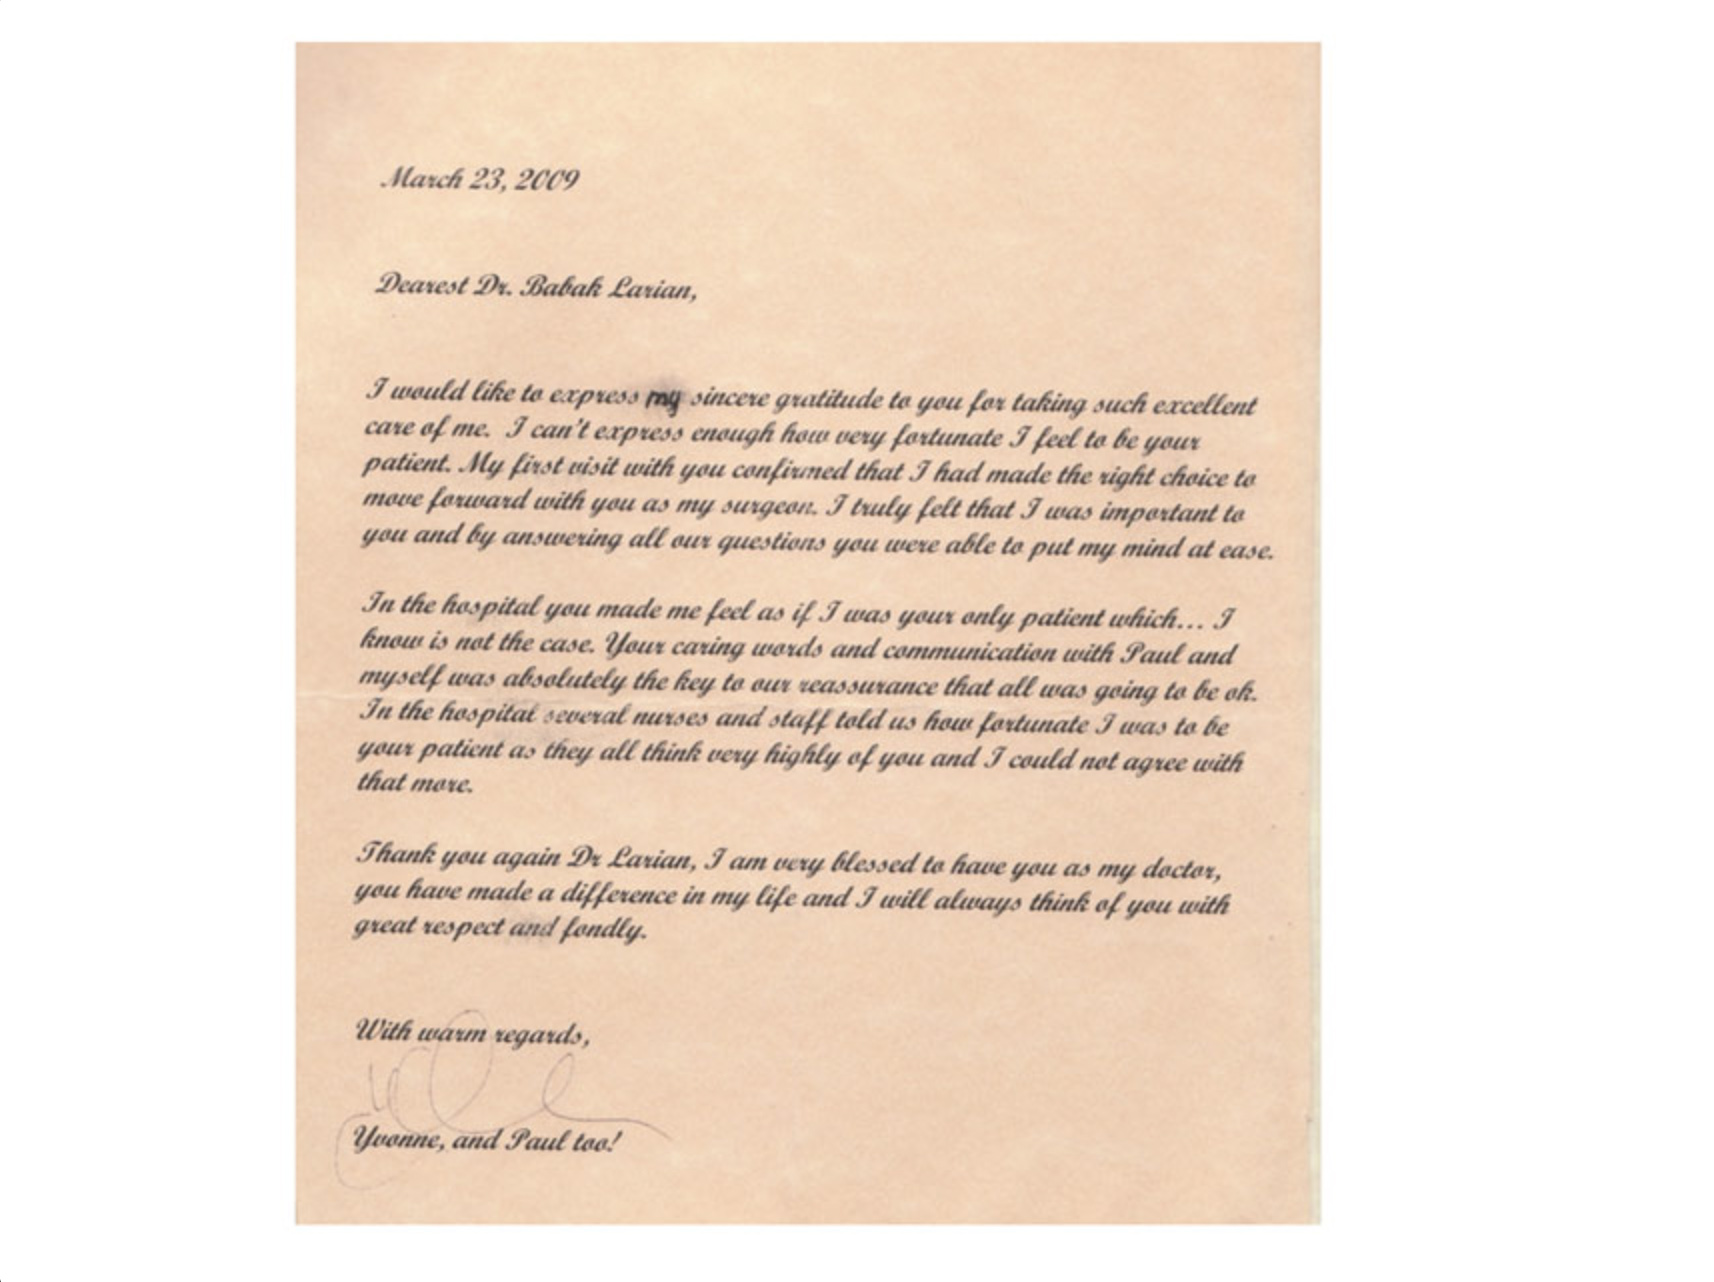 March 23, 2009
Dearest Dr. Babak Larian,
I would like to express my sincere gratitude to you for taking such excellent
care of me.  I can't express enough how very fortunate I feel to be your
patient. My first visit with you confirmed that I had made the right choice to
move forward with you as my surgeon. I truly felt that I was important to
you and by answering all our questions you were able to put my mind at ease.
In the hospital you made me feel as if I was your only patient which... I
know is not the case. Your caring words and communication with Paul and
myself was absolutely the key to our reassurance that all was going to be ok.
In the hospital several nurses and staff told us how fortunate I was to be
your patient as they all think very highly of you and I could not agree with
that more.
Thank you again Dr Larian, I am very blessed to have you as my doctor,
you have made a difference in my life and I will always think of you with
great respect and fondly.
With warm regards,
Yvonne, and Paul too!